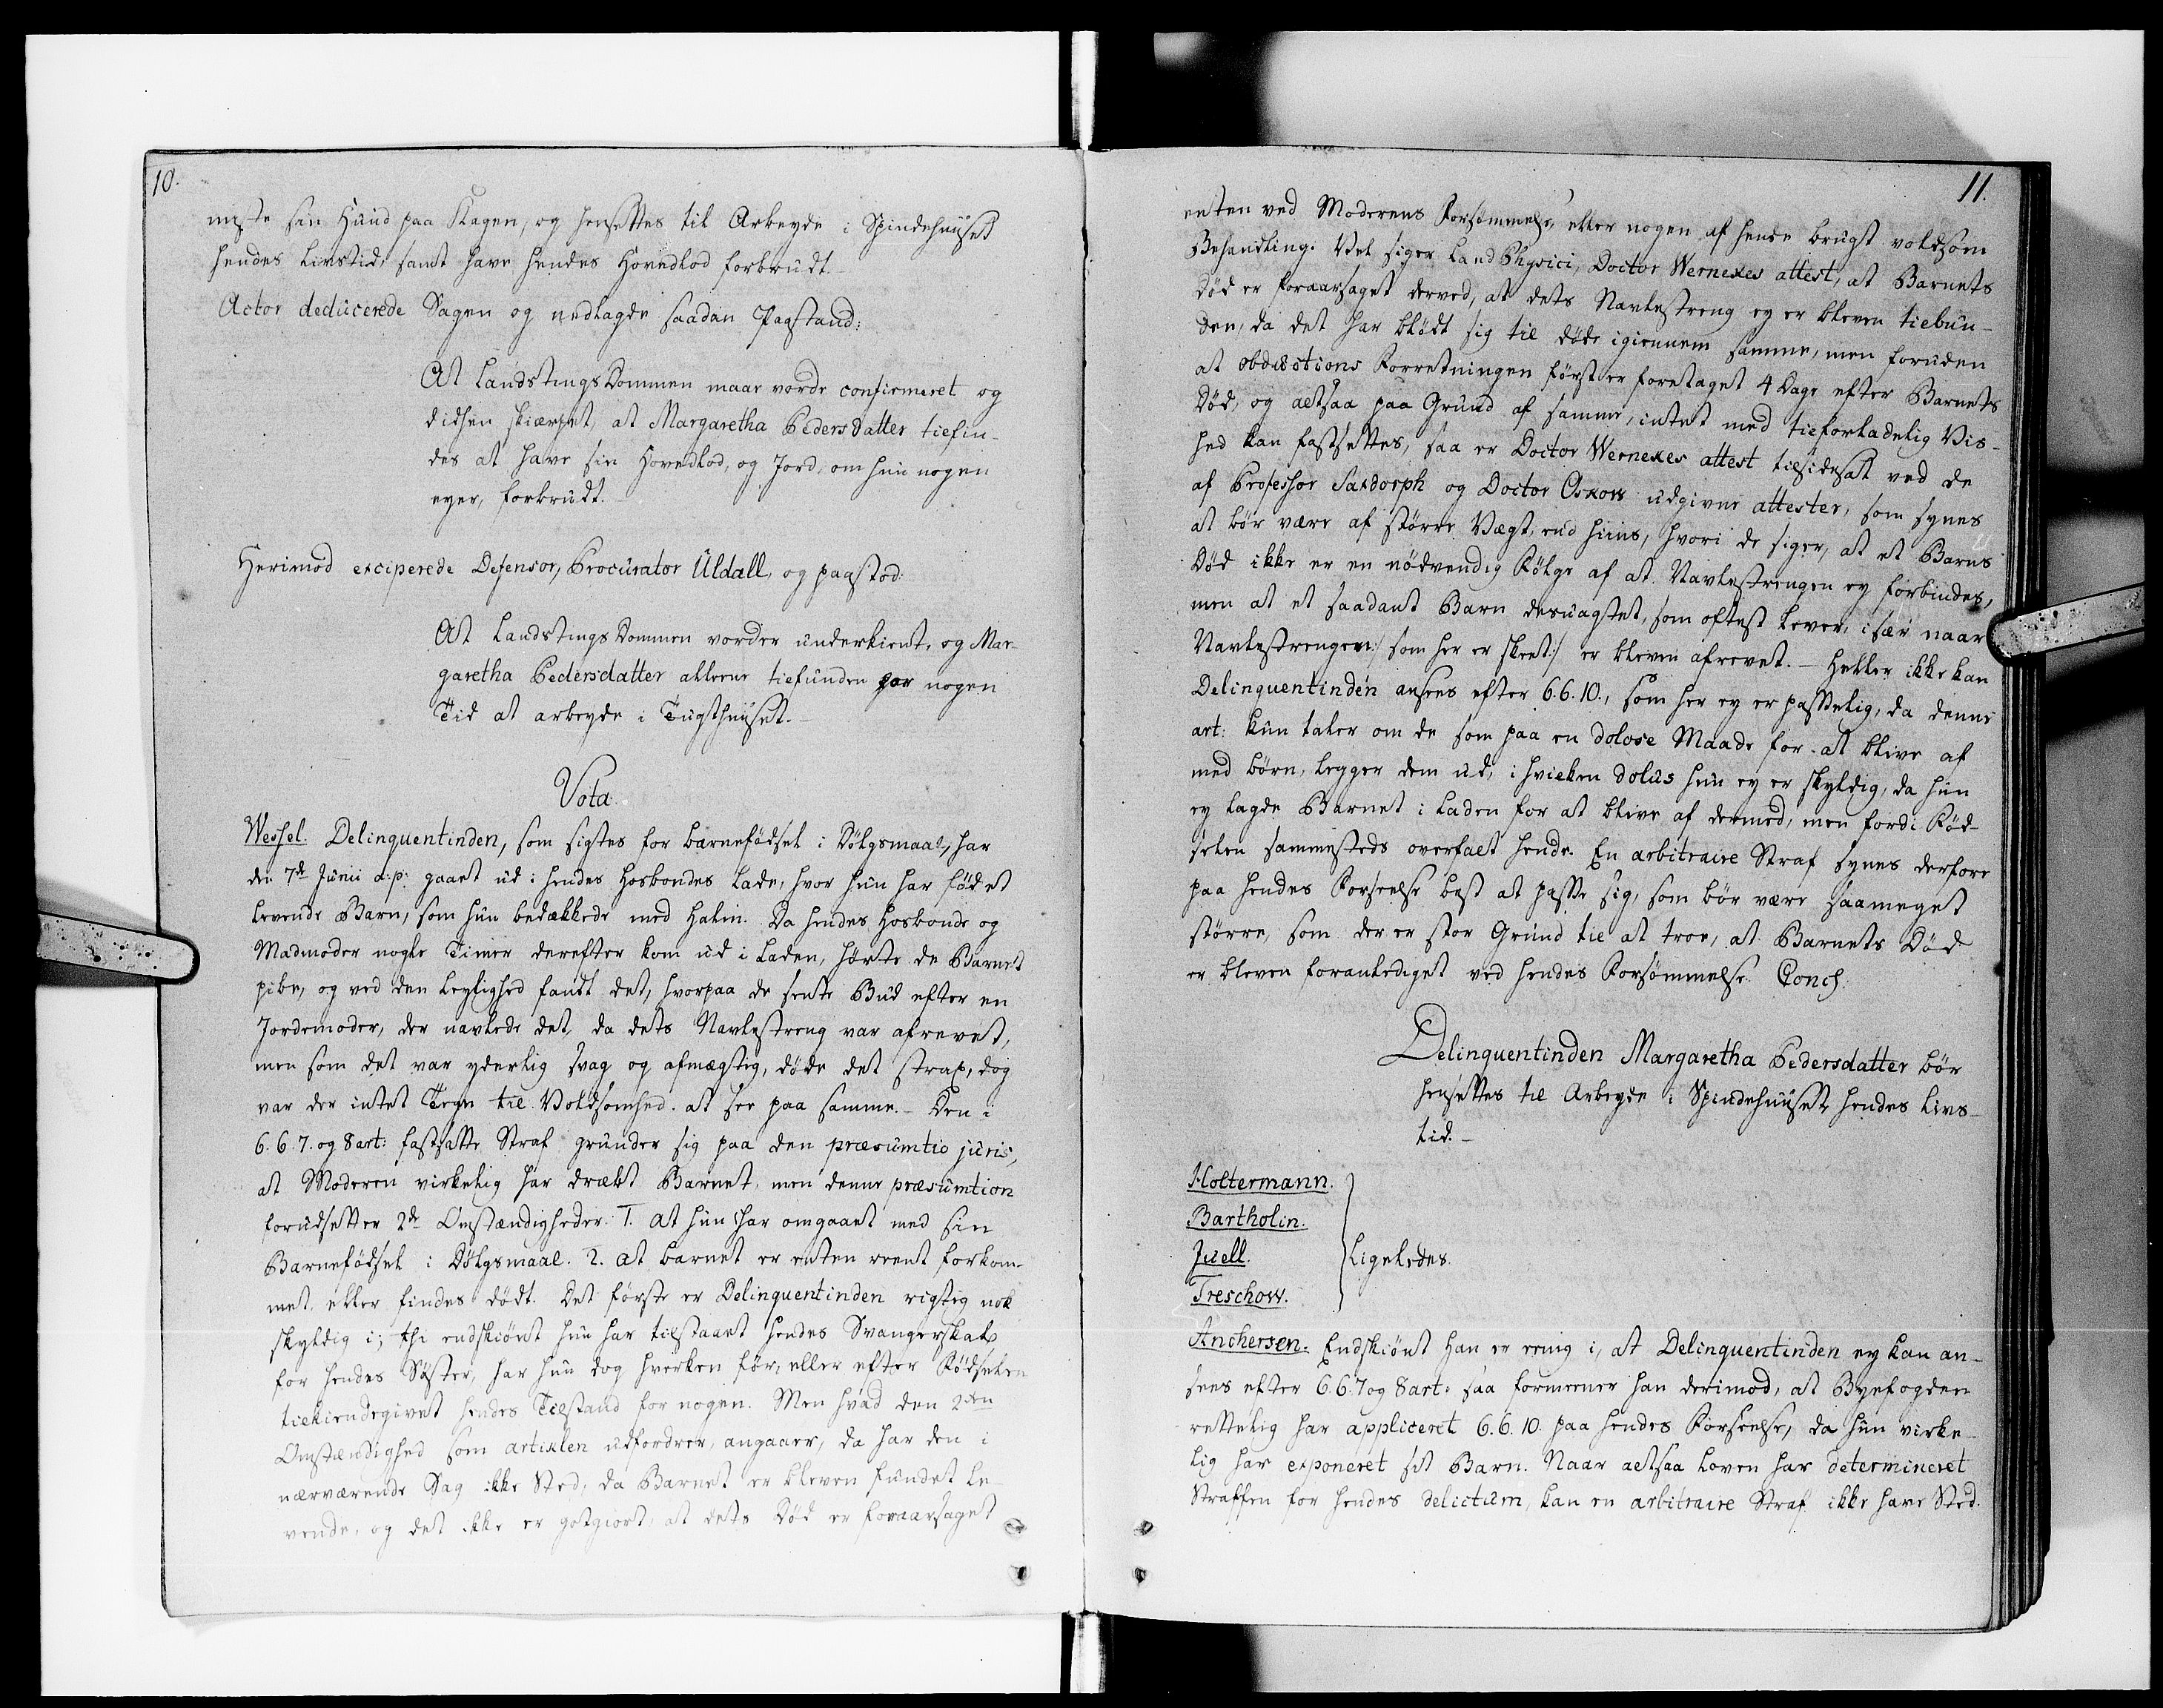 10.
miste sin Hund paa Kagen, og hensettes til Arbeyde i Spindehuuset
hendes Livstid, samt have hendes Hovedlod forbrudt.
Actor deducerede Sagen og nedlagde saadan Paastand:
At LandstingsDommen maae vorde confirmeret og
didhen skiærpet, at Margaretha PedersDatter tilfin-
des at have sin Hovedlod, og Jord, om hun nogen
eyer, forbrudt.
Herimod exciperede Defensor, Procurator Uldall, og paastod:
At LandstingsDommen vorder underkient, og Mar-
garetha Pedersdatter allene tilfunden paa nogen
Tid at arbeyde i Tugthuuset.
Vota.
Wessel. Delinquentinden, som sigtes for barnefödsel i Dölgsmaal, har
den 7de Junii a: p: gaaet ud i hendes Hosbondes Lade, hvor hun har föd et
levende Barn, som hun bedækkede med Halm. Da hendes Hosbonde og
Madmoder nogle Timer derefter kom ud i Laden, hörte de Barnet
pibe, og ved den Leylighed fandt det, hvorpaa de sendte Bud efter en
Jordemoder, der navlede det, da dets Navlestreng var afrevet,
men som det var yderlig svag og afmægtig, döde det strax, dog
var der intet Tegn til Voldsomhed at see paa samme. – Den i
6. 6. 7. og 8 art: fastsatte Straf grunder sig paa den præsumtio juris,
at Moderen virkelig har dræbt Barnet, men denne præsumtion
forudsetter 2de Omstændigheder. 1. At hun har omgaaet med sin
Barnefödsel i Dölgsmaal. 2. At barnet er enten reent forkom-
met, eller findes dödt. Det förste er Delinquentinden rigtig nok
skyldig i; thi endskiönt hun har tilstaaet hendes Svangerskab
for hendes Söster, har hun dog hverken för, eller efter Födselen
tilkiendegivet hendes Tilstand for nogen. Men hvad den 2den
Omstændighed som artiklen udfordrer, angaaer, da har den i
nærværende Sag ikke Sted, da Barnet er bleven fundet le-
vende, og det ikke er gotgiort, at dets Död er foraarsaget
11.
enten ved Moderens Forsömmelse, eller nogen af hende brugt voldsom
Behandling. Vel siger Land Physici, Doctor Wernekes attest, at Barnets
Död er foraarsaget derved, at dets Navlestreng ey er bleven tilbun-
den, da det har blödt sig til döde igiennem samme, men foruden
at obductions Forretningen först er foretaget 4 Dage efter Barnets
Död, og altsaa paa Grund af samme, intet med tilforladelig Vis-
hed kan fastsettes, saa er Doctor Wernekes attest tilsidesat ved de
af Professor Saxdorph og Doctor Oskow udgivne attester, som synes
at bör være af större Vægt, end hiins, hvori de siger, at et Barns
Död ikke er en nödvendig Fölge af at Navlestrengen ey forbindes,
men at et saadant Barn desuagtet, som oftest lever, især naar
Navlestrengen /: som her er skeet :/ er bleven afrevet. – Heller ikke kan
Delinquentinden ansees efter 6. 6. 10., som her ey er passelig, da denne
art: kun taler om de som paa en dolose Maade for at blive af
med börn, legger dem ud, i hvilken dolus hun ey er skyldig, da hun
ey lagde Barnet i Laden for at blive af dermed, men fordi Föd-
selen sammesteds overfalt hende. En arbitraire Straf synes derfore
paa hendes Forseelse best at passe sig, som bör være saameget
större, som der er stor Grund til at troe, at Barnets Död
er bleven foranlediget ved hendes Forsömmelse. Concl.
Delinquentinden Margaretha Pedersdatter bör
hensettes til Arbeyde i Spindehuuset hendes Livs-
tid. –
Holtermann.
Bartholin.
Juell. Ligeledes.
Treschow.
Anchersen. Endskiönt han er eenig i, at Delinquentinden ey kan an-
sees efter 6. 6. 7 og 8 art: saa formeener han derimod, at Byefogden
rettelig har appliceret 6. 6. 10. paa hendes Forseelse, da hun virke-
lig har exponeret sit Barn. Naar altsaa Loven har determineret
Straffen for hendes delictum, kan en arbitraire Straf ikke have Sted.